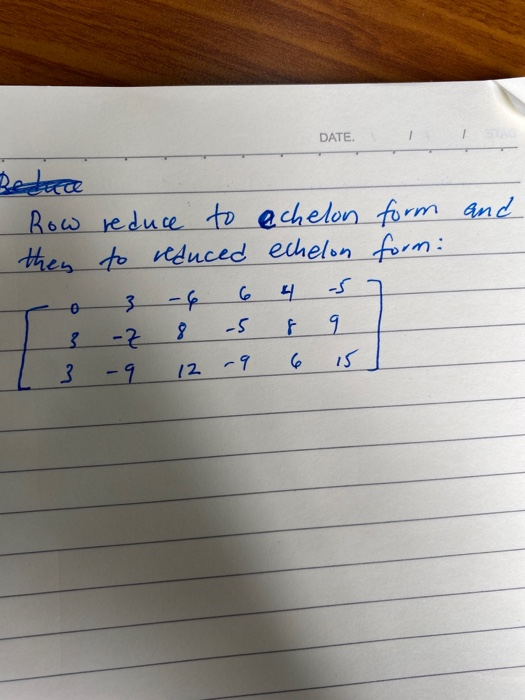 DATE. / /
Reduce
Row reduce to echelon form and
then to reduced echelon form:
0 3 -6 6 4 -5
3 -7 8 -5 8 9
3 -9 12 -9 6 15